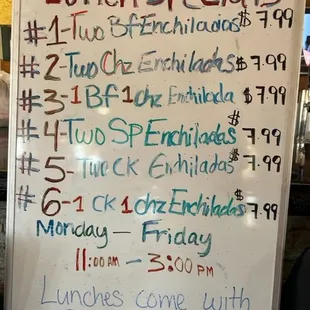 Lunch Specials
#1-Two Bf Enchiladas $7.99
#2-Two Chz Enchiladas $7.99
#3-1 Bf 1 chz Enchilada $7.99
#4-Two SP Enchiladas $7.99
#5-Two CK Enchiladas $7.99
#6-1 CK 1 chz Enchiladas $7.99
Monday - Friday
11:00 AM - 3:00 PM
Lunches come with